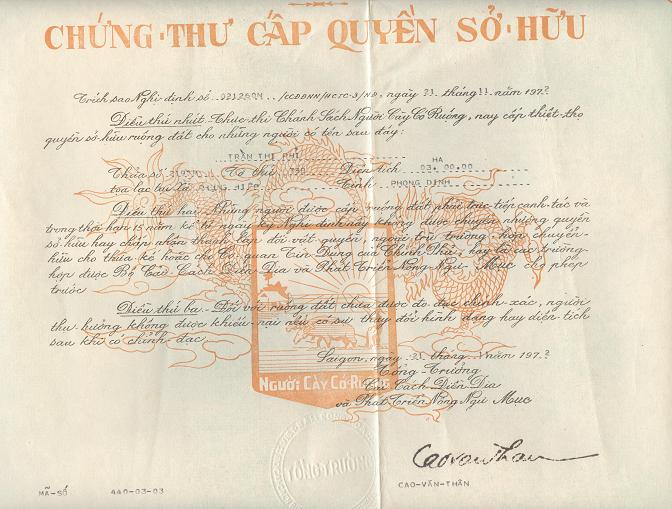 CHỨNG-THƯ CẤP QUYỀN SỞ-HỮU
Trích sao Nghị-định số /CCĐĐNN/HCTC-3/NĐ, ngày tháng 11 năm 197
Điều thứ nhứt.- Thực-thi Chánh Sách Người Cày Có Ruộng, nay cấp thiệt-thọ
quyền sở-hữu ruộng đất cho những người có tên sau đây:
TRẦN THỊ PHỈ HA
Thửa số Tờ thứ 730 Diện Tích 03.00.00
tọa lạc tại Xã HIỆP Tỉnh PHONG DINH
Điều thứ hai.- Những người được cấp ruộng đất phải trực tiếp canh-tác và
trong thời hạn 15 năm kể từ ngày ký Nghị định này không được chuyển nhượng quyền
sở-hữu hay chấp nhận thành lập đối vật-quyền, ngoại trừ trường-hợp chuyển-
hữu cho thừa kế hoặc cho Cơ-quan Tín Dụng của Chính Phủ, hay là các trường-
hợp được Bộ Cải Cách Điền Địa và Phát Triển Nông Ngư Mục cho phép
trước
Điều thứ ba.- Đối với ruộng đất chưa được đo đạc chính-xác, người
thụ hưởng không được khiếu-nại nếu có sự thay đổi hình dạng hay diện-tích
sau khi có chỉnh-đạc.
Saigon, ngày tháng năm 197
Tổng-Trưởng
Cải Cách Điền Địa
và Phát Triển Nông Ngư Mục
NGƯỜI CÀY CÓ RUỘNG
TỔNG TRƯỞNG
Cao văn Thân
MÃ-SỐ 440-03-03
CAO-VĂN-THÂN